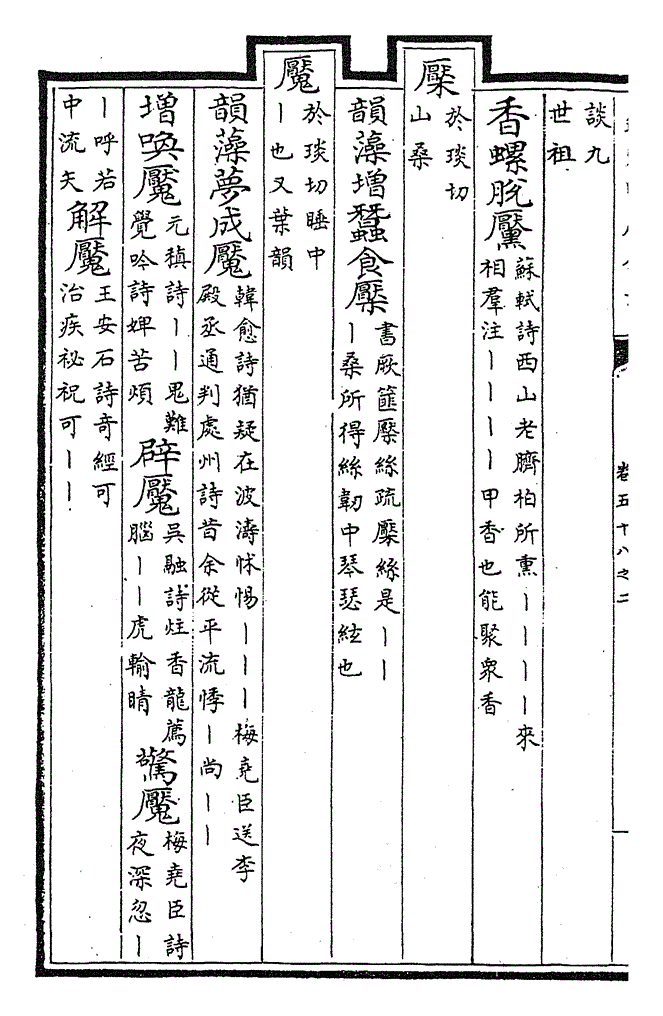 卷五十八之二
談九
世祖
香螺脫黶
蘇軾詩西山老臍柏所熏丨丨丨丨來
相羣注丨丨丨丨甲香也能聚衆香
檿
於琰切
山桑
韻藻增蠶食檿
書厥篚檿絲疏檿絲是丨丨
丨桑所得絲韌中琴瑟絃也
魘
於琰切睡中
丨也又葉韻
韻藻夢成魘
韓愈詩猶疑在波濤怵惕丨丨丨梅堯臣送李
殿丞通判處州詩昔余從平流悸丨尚丨丨
增喚魘
元稹詩丨丨鬼難
覺吟詩婢苦煩
辟魘
吳融詩炷香龍薦
腦丨丨虎輸睛
驚魘
梅堯臣詩
夜深忽丨
丨呼若
中流矢
解魘
王安石詩奇經可
治疾祕祝可丨丨